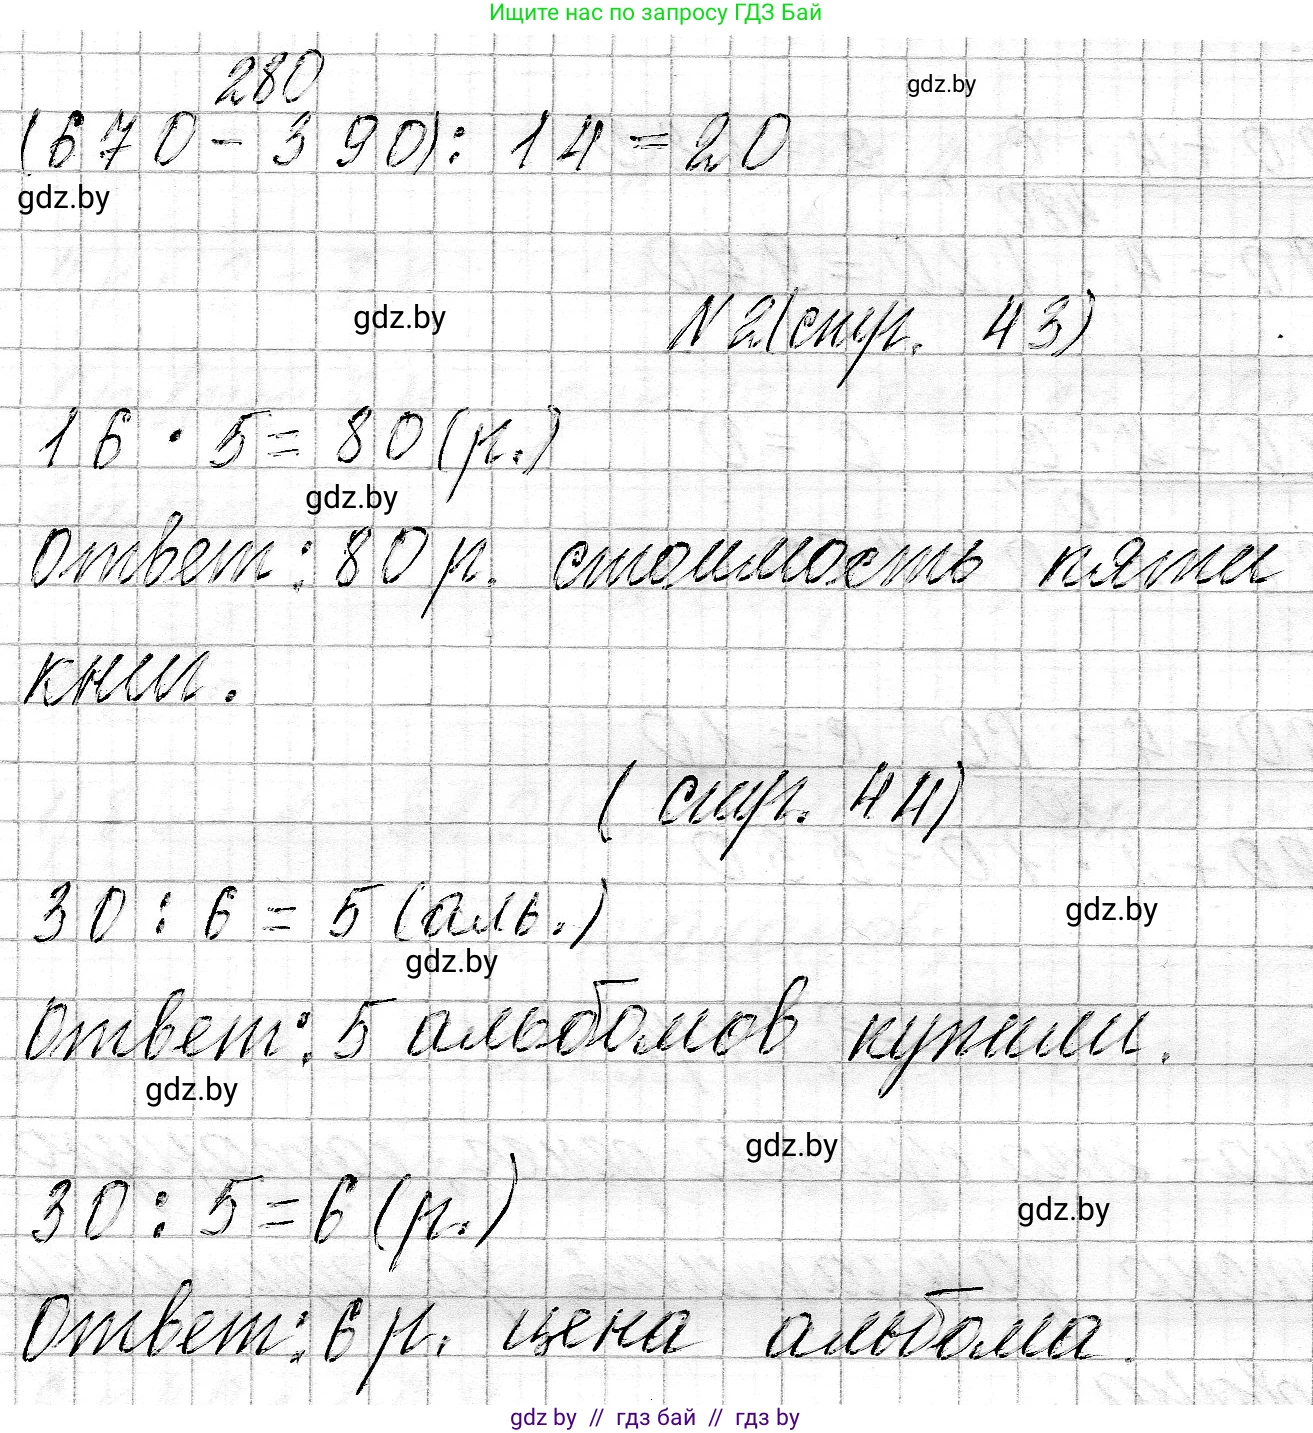 Ищите нас по запросу ГДЗ Бай
280
gdz.by
(670 - 390) : 14 = 20
gdz.by
gdz.by
N 2 (стр. 43)
16 · 5 = 80 (р.)
gdz.by
Ответ: 80 р. стоимость пяти
книг.
(стр. 44)
30 : 6 = 5 (аль.)
gdz.by
gdz.by
Ответ: 5 альбомов купили.
gdz.by
gdz.by
30 : 5 = 6 (р.)
gdz.by
Ответ: 6 р. цена альбома.
gdz by // гдз бай // гдз by